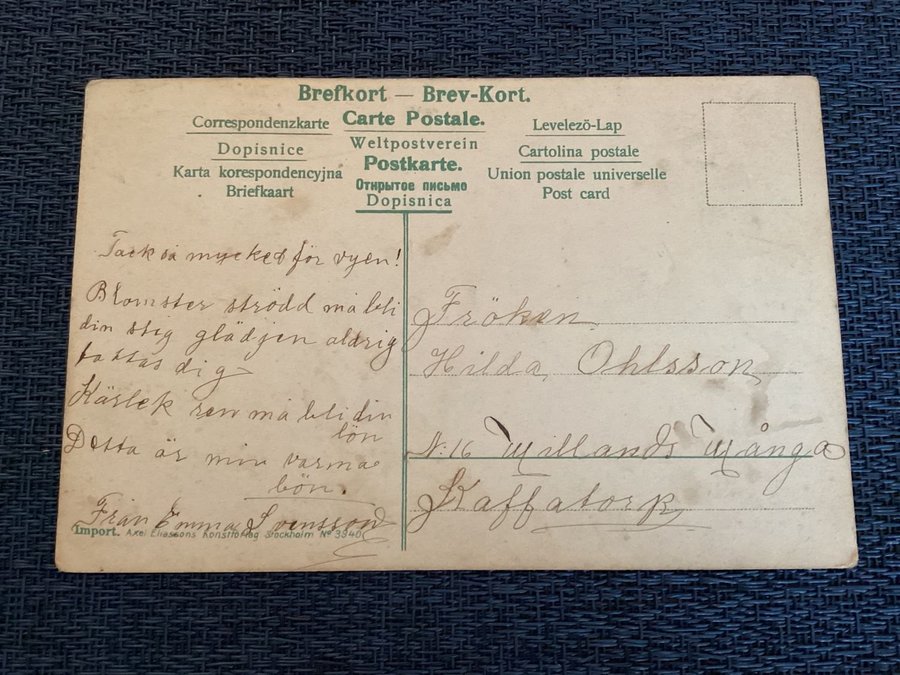 Brefkort — Brev-Kort.
Correspondenzkarte Carte Postale. Levelezö-Lap
Dopisnice Weltpostverein Cartolina postale
Karta korespondencyjna Postkarte. Union postale universelle
Briefkaart Открытое письмо Post card
Dopisnica
Tack så mycked för vyen!
Blomster strödd må bli
din stig glädjen aldrig
fattas dig
Kärlek ren må bli din
lön
Detta är min varma
bön.
Från Emma Svensson
Import. Axel Eliassons Konstförlag Stockholm No 3940
Fröken
Hilda, Ohlsson
N: 16 Millands Många
Kaffatorp